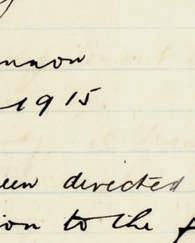 nnon
1915
een directed
ion to the f